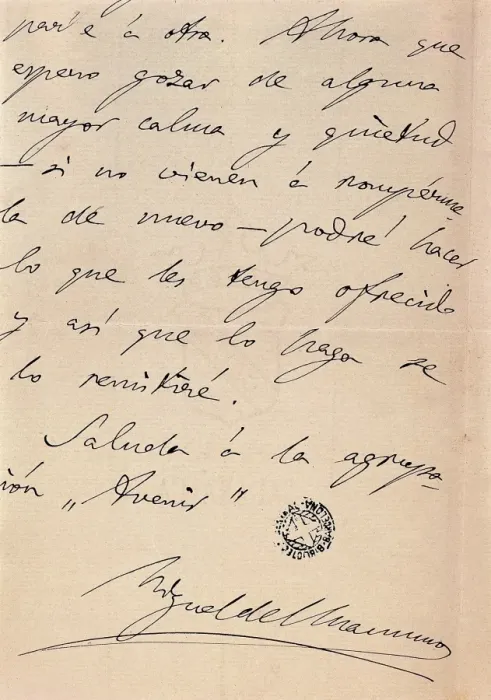 par e á otra. Ahora que
espero gozar de alguna
mayor calma y quietud
— si no vienen á rompérme-
la de nuevo — podré hacer
lo que les tengo ofrecido
y así que lo haga se
lo remitiré.
Saluda á la agrupa-
ión „Avenir"
Miguel de Unamuno